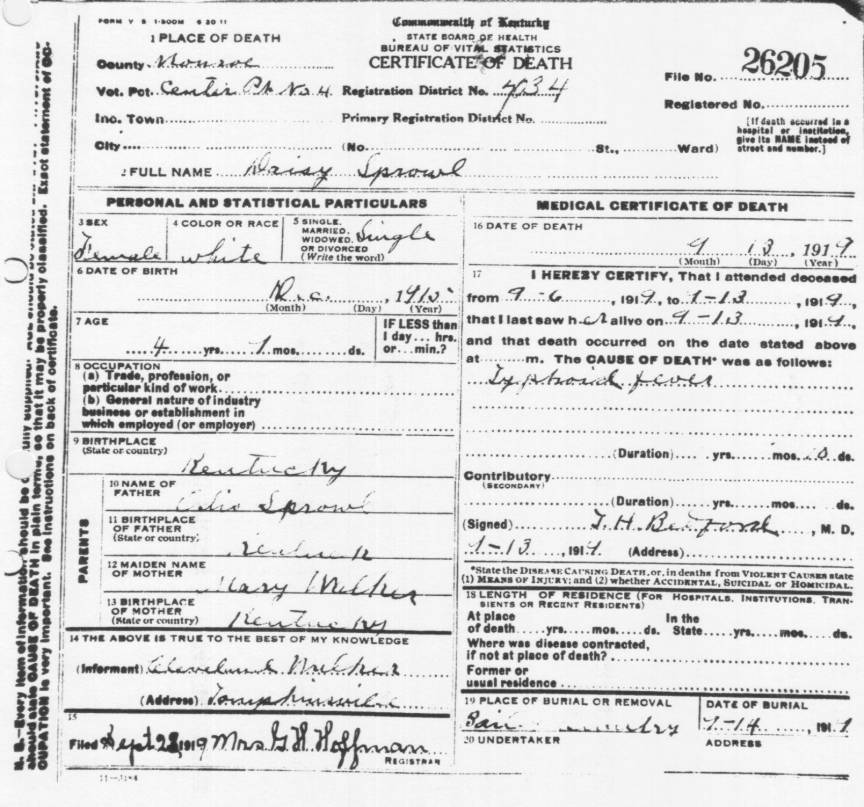 FORM V S 1-500M 6 20 11
Commonwealth of Kentucky
STATE BOARD OF HEALTH
BUREAU OF VITAL STATISTICS
CERTIFICATE OF DEATH
File No. 26205
Registered No.
[If death occurred in a hospital or institution, give its NAME instead of street and number.]
1 PLACE OF DEATH
County Monroe
Vot. Pct. Center Pt No 4 Registration District No. 434
Inc. Town Primary Registration District No.
City (No. St., Ward)
2 FULL NAME Daisy Sprowl
PERSONAL AND STATISTICAL PARTICULARS
3 SEX Female
4 COLOR OR RACE white
5 SINGLE, MARRIED, WIDOWED, OR DIVORCED (Write the word) Single
6 DATE OF BIRTH
Dec. , 1915
(Month) (Day) (Year)
7 AGE
4 yrs. 1 mos. ds.
IF LESS than 1 day... hrs. or... min.?
8 OCCUPATION
(a) Trade, profession, or
particular kind of work
(b) General nature of industry
business or establishment in
which employed (or employer)
9 BIRTHPLACE
(State or country)
Kentucky
PARENTS
10 NAME OF FATHER
Sprowl
11 BIRTHPLACE OF FATHER
(State or country)
12 MAIDEN NAME OF MOTHER
Mary
13 BIRTHPLACE OF MOTHER
(State or country) Kentucky
14 THE ABOVE IS TRUE TO THE BEST OF MY KNOWLEDGE
(Informant) Cleveland
(Address) Tompkinsville
15
Filed Sept 28, 1919 Mrs G. H. Hoffman
REGISTRAR
MEDICAL CERTIFICATE OF DEATH
16 DATE OF DEATH
9 13 , 1919
(Month) (Day) (Year)
17 I HEREBY CERTIFY, That I attended deceased
from 9-6 , 1919, to 9-13 , 1919,
that I last saw her alive on 9-13 , 1919,
and that death occurred on the date stated above
at m. The CAUSE OF DEATH* was as follows:
Typhoid fever
(Duration) yrs. mos. ds.
Contributory
(SECONDARY)
(Duration) yrs. mos. ds.
(Signed) T. H. , M. D.
9-13 , 1919 (Address)
*State the DISEASE CAUSING DEATH, or, in deaths from VIOLENT CAUSES state
(1) MEANS OF INJURY; and (2) whether ACCIDENTAL, SUICIDAL or HOMICIDAL.
18 LENGTH OF RESIDENCE (FOR HOSPITALS, INSTITUTIONS, TRANSIENTS OR RECENT RESIDENTS)
At place of death yrs. mos. ds. In the State yrs. mos. ds.
Where was disease contracted,
if not at place of death?
Former or
usual residence
19 PLACE OF BURIAL OR REMOVAL
DATE OF BURIAL
9-14 , 1919
20 UNDERTAKER
ADDRESS
N. B.—Every item of information should be
should state CAUSE OF DEATH in plain terms, so that it may be properly classified. Exact statement of OCCUPATION is very important. See instructions on back of certificate.